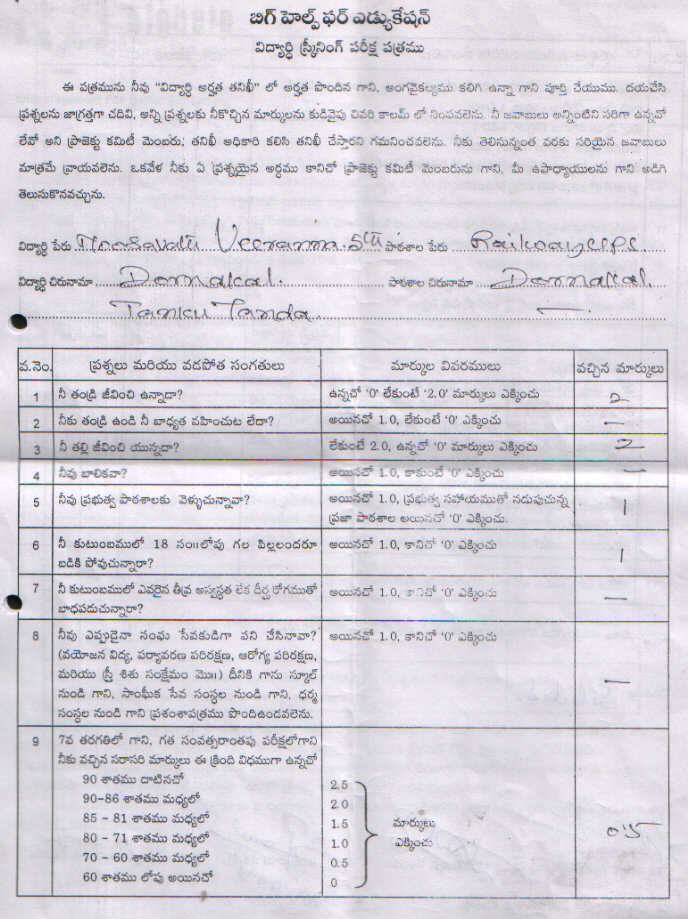 బిగ్ హెల్ప్ ఫర్ ఎడ్యుకేషన్
విద్యార్థి స్క్రీనింగ్ పరీక్ష పత్రము
ఈ పత్రమును నీవు "విద్యార్థి అర్హత తనిఖీ" లో అర్హత పొందిన గాని, అంగవైకల్యము కలిగి ఉన్నా గాని పూర్తి చేయుము. దయచేసి
ప్రశ్నలను జాగ్రత్తగా చదివి, అన్ని ప్రశ్నలకు నీకొచ్చిన మార్కులను కుడివైపు చివరి కాలమ్ లో నింపవలెను. నీ జవాబులు అన్నింటిని సరిగా ఉన్నవో
లేవో అని ప్రాజెక్టు కమిటీ మెంబరు; తనిఖీ అధికారి కలిసి తనిఖీ చేస్తారని గమనించవలెను. నీకు తెలిసున్నంత వరకు సరియైన జవాబులు
మాత్రమే వ్రాయవలెను. ఒకవేళ నీకు ఏ ప్రశ్నయైన అర్థము కానిచో ప్రాజెక్టు కమిటీ మెంబరును గాని, మీ ఉపాధ్యాయులను గాని అడిగి
తెలుసుకొనవచ్చును.
విద్యార్థి పేరు Veeranna. పాఠశాల పేరు
విద్యార్థి చిరునామా Dornakal. పాఠశాల చిరునామా Dornakal.
Tanku Tanda —
వ.నెం. ప్రశ్నలు మరియు వడపోత సంగతులు మార్కుల వివరములు వచ్చిన మార్కులు
1 నీ తండ్రి జీవించి ఉన్నాడా? ఉన్నచో '0' లేకుంటే '2.0' మార్కులు ఎక్కించు 2
2 నీకు తండ్రి ఉండి నీ బాధ్యత వహించుట లేదా? అయినచో 1.0, లేకుంటే '0' ఎక్కించు —
3 నీ తల్లి జీవించి యున్నదా? లేకుంటే 2.0, ఉన్నచో '0' మార్కులు ఎక్కించు 2
4 నీవు బాలికవా? అయినచో 1.0, కాకుంటే '0' ఎక్కించు —
5 నీవు ప్రభుత్వ పాఠశాలకు వెళ్ళుచున్నావా? అయినచో 1.0, ప్రభుత్వ సహాయముతో నడుపుచున్న 1
ప్రజా పాఠశాల అయినచో '0' ఎక్కించు.
6 నీ కుటుంబములో 18 సం॥లోపు గల పిల్లలందరూ అయినచో 1.0, కానిచో '0' ఎక్కించు 1
బడికి పోవుచున్నారా?
7 నీ కుటుంబములో ఎవరైన తీవ్ర అస్వస్థత లేక దీర్ఘ రోగముతో అయినచో 1.0, కానిచో '0' ఎక్కించు —
బాధపడుచున్నారా?
8 నీవు ఎప్పుడైనా సంఘ సేవకుడిగా పని చేసినావా? అయినచో 1.0, కానిచో '0' ఎక్కించు —
(వయోజన విద్య, పర్యావరణ పరిరక్షణ, ఆరోగ్య పరిరక్షణ,
మరియు స్త్రీ శిశు సంక్షేమం మొ॥) దీనికి గాను స్కూల్
నుండి గాని, సాంఘిక సేవ సంస్థల నుండి గాని, ధర్మ
సంస్థల నుండి గాని ప్రశంశాపత్రము పొందిఉండవలెను.
9 7వ తరగతిలో గాని, గత సంవత్సరాంతపు పరీక్షలోగాని
నీకు వచ్చిన సరాసరి మార్కులు ఈ క్రింది విధముగా ఉన్నచో
90 శాతము దాటినచో 2.5
90-86 శాతము మధ్యలో 2.0
85 - 81 శాతము మధ్యలో 1.5 మార్కులు
80 - 71 శాతము మధ్యలో 1.0 ఎక్కించు 0.5
70 - 60 శాతము మధ్యలో 0.5
60 శాతము లోపు అయినచో 0